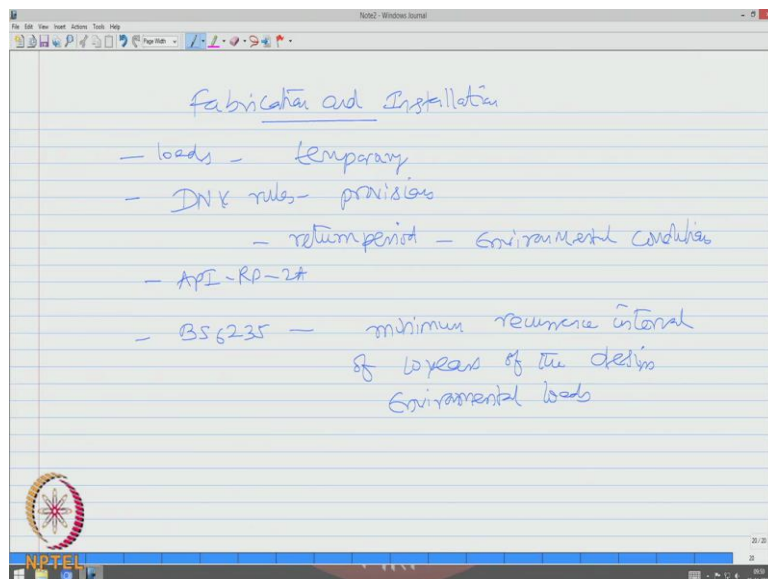 Note2 - Windows Journal
File Edit View Insert Actions Tools Help
Page Width
Fabrication and Installation
— loads - temporary
- DNV rules - provisions
- return period - Environmental conditions
- API-RP-2A
- BS6235 — minimum recurrence interval
of 10 years of the design
Environmental loads
20/20
20
NPTEL
09:50